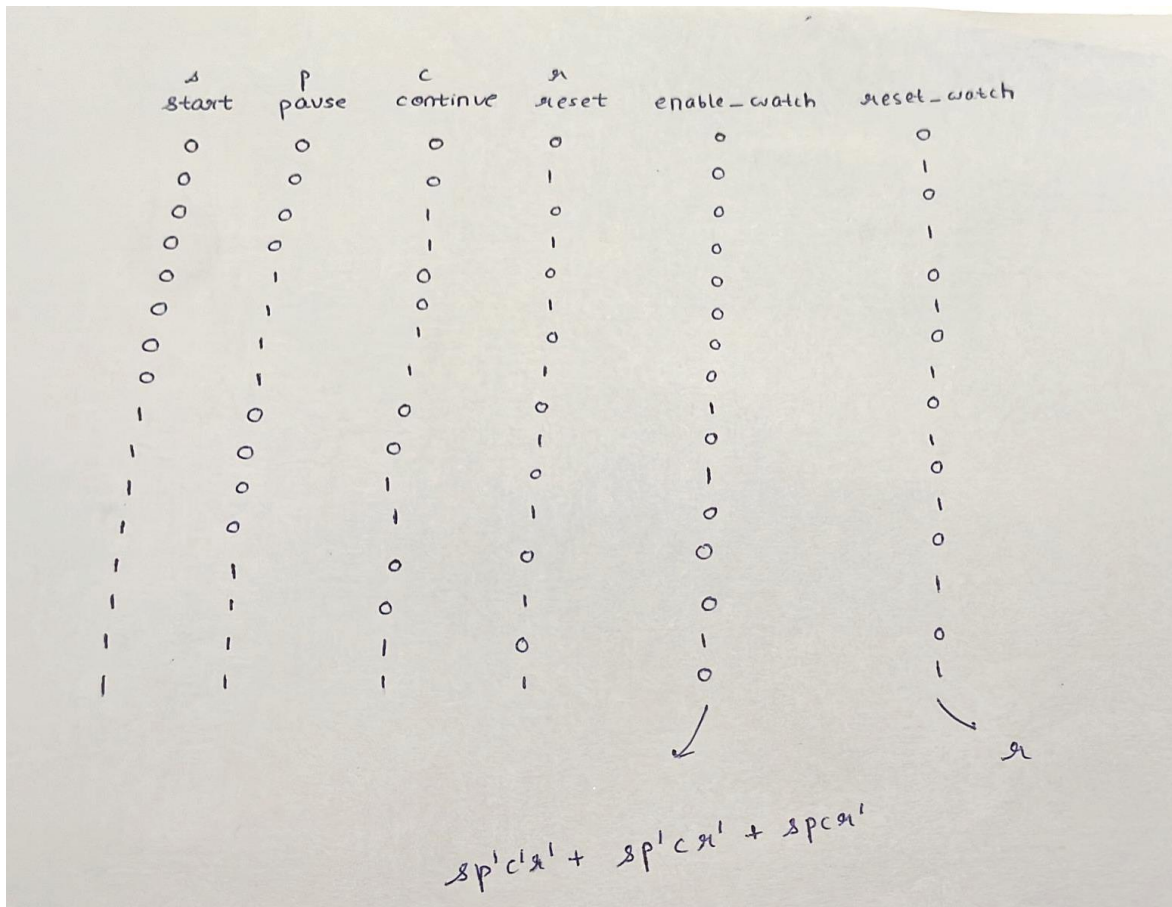 s p c r
start pause continue reset enable_watch reset_watch
0 0 0 0 0 0
0 0 0 1 0 1
0 0 1 0 0 0
0 0 1 1 0 1
0 1 0 0 0 0
0 1 0 1 0 1
0 1 1 0 0 0
0 1 1 1 0 1
1 0 0 0 1 0
1 0 0 1 0 1
1 0 1 0 1 0
1 0 1 1 0 1
1 1 0 0 0 0
1 1 0 1 0 1
1 1 1 0 1 0
1 1 1 1 0 1
r
sp'c'r' + sp'cr' + spcr'